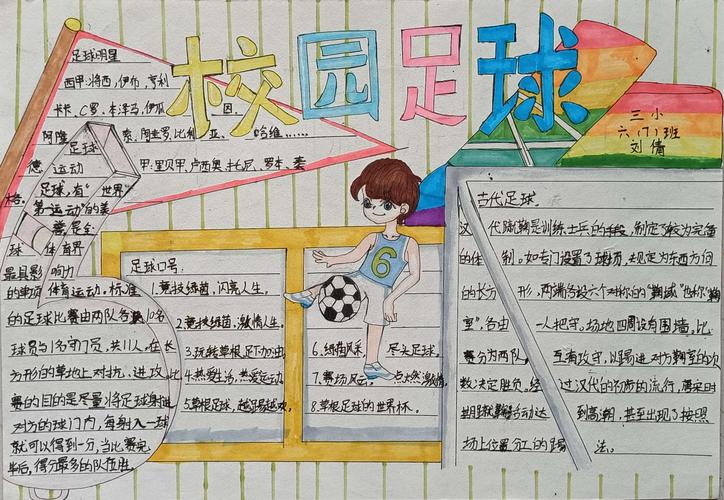 校园足球
三小
六(1)班
刘倩
足球明星
西甲:将西,伊布,亨利
卡卡、C罗、本泽马,伊瓜 因.
阿隆 索、
哈维……
德 甲:里贝甲、卢西奥、托尼、罗本、套
格.
足球
运动
足球,有“世界”
第一运动”的美
誉,是全
球 体育界
最具影 响力
的单项 体育运动。标准
的足球比赛由两队各 10名
球员与1名守门员,共11人,在长
方形的草地上对抗、进攻,比
赛的目的是尽量将足球射进
对方的球门内,每射入一球
就可以得到一分,当比赛完
毕后,得分最多的队伍胜.
足球口号:
1.竞技绿茵,闪亮人生。
2.竞技绿茵,激情人生。
3.玩转草根,足下加油
4.热爱生活,热爱运动
5.草根足球,越踢越欢.
6.绿茵风采 尽头足球。
7.赛场风云, 点燃激情
8.草根足球的世界杯。
6
古代足球.
汉 代蹴鞠是训练士兵的手段,制定了较为完备
的体 制。如专门设置了球场,规定为东西方向
的长方 形,两端各设六个对称的“鞠域”也称“鞠
室”,各由 一人把守。场地四周设有围墙,比
赛分为两队, 互有攻守,以踢进对方鞠室的次
数决定胜负。经 过汉代的初步的流行,唐宋时
期蹴鞠活动达 到高潮,甚至出现了按照
场上位置分工的踢 法。